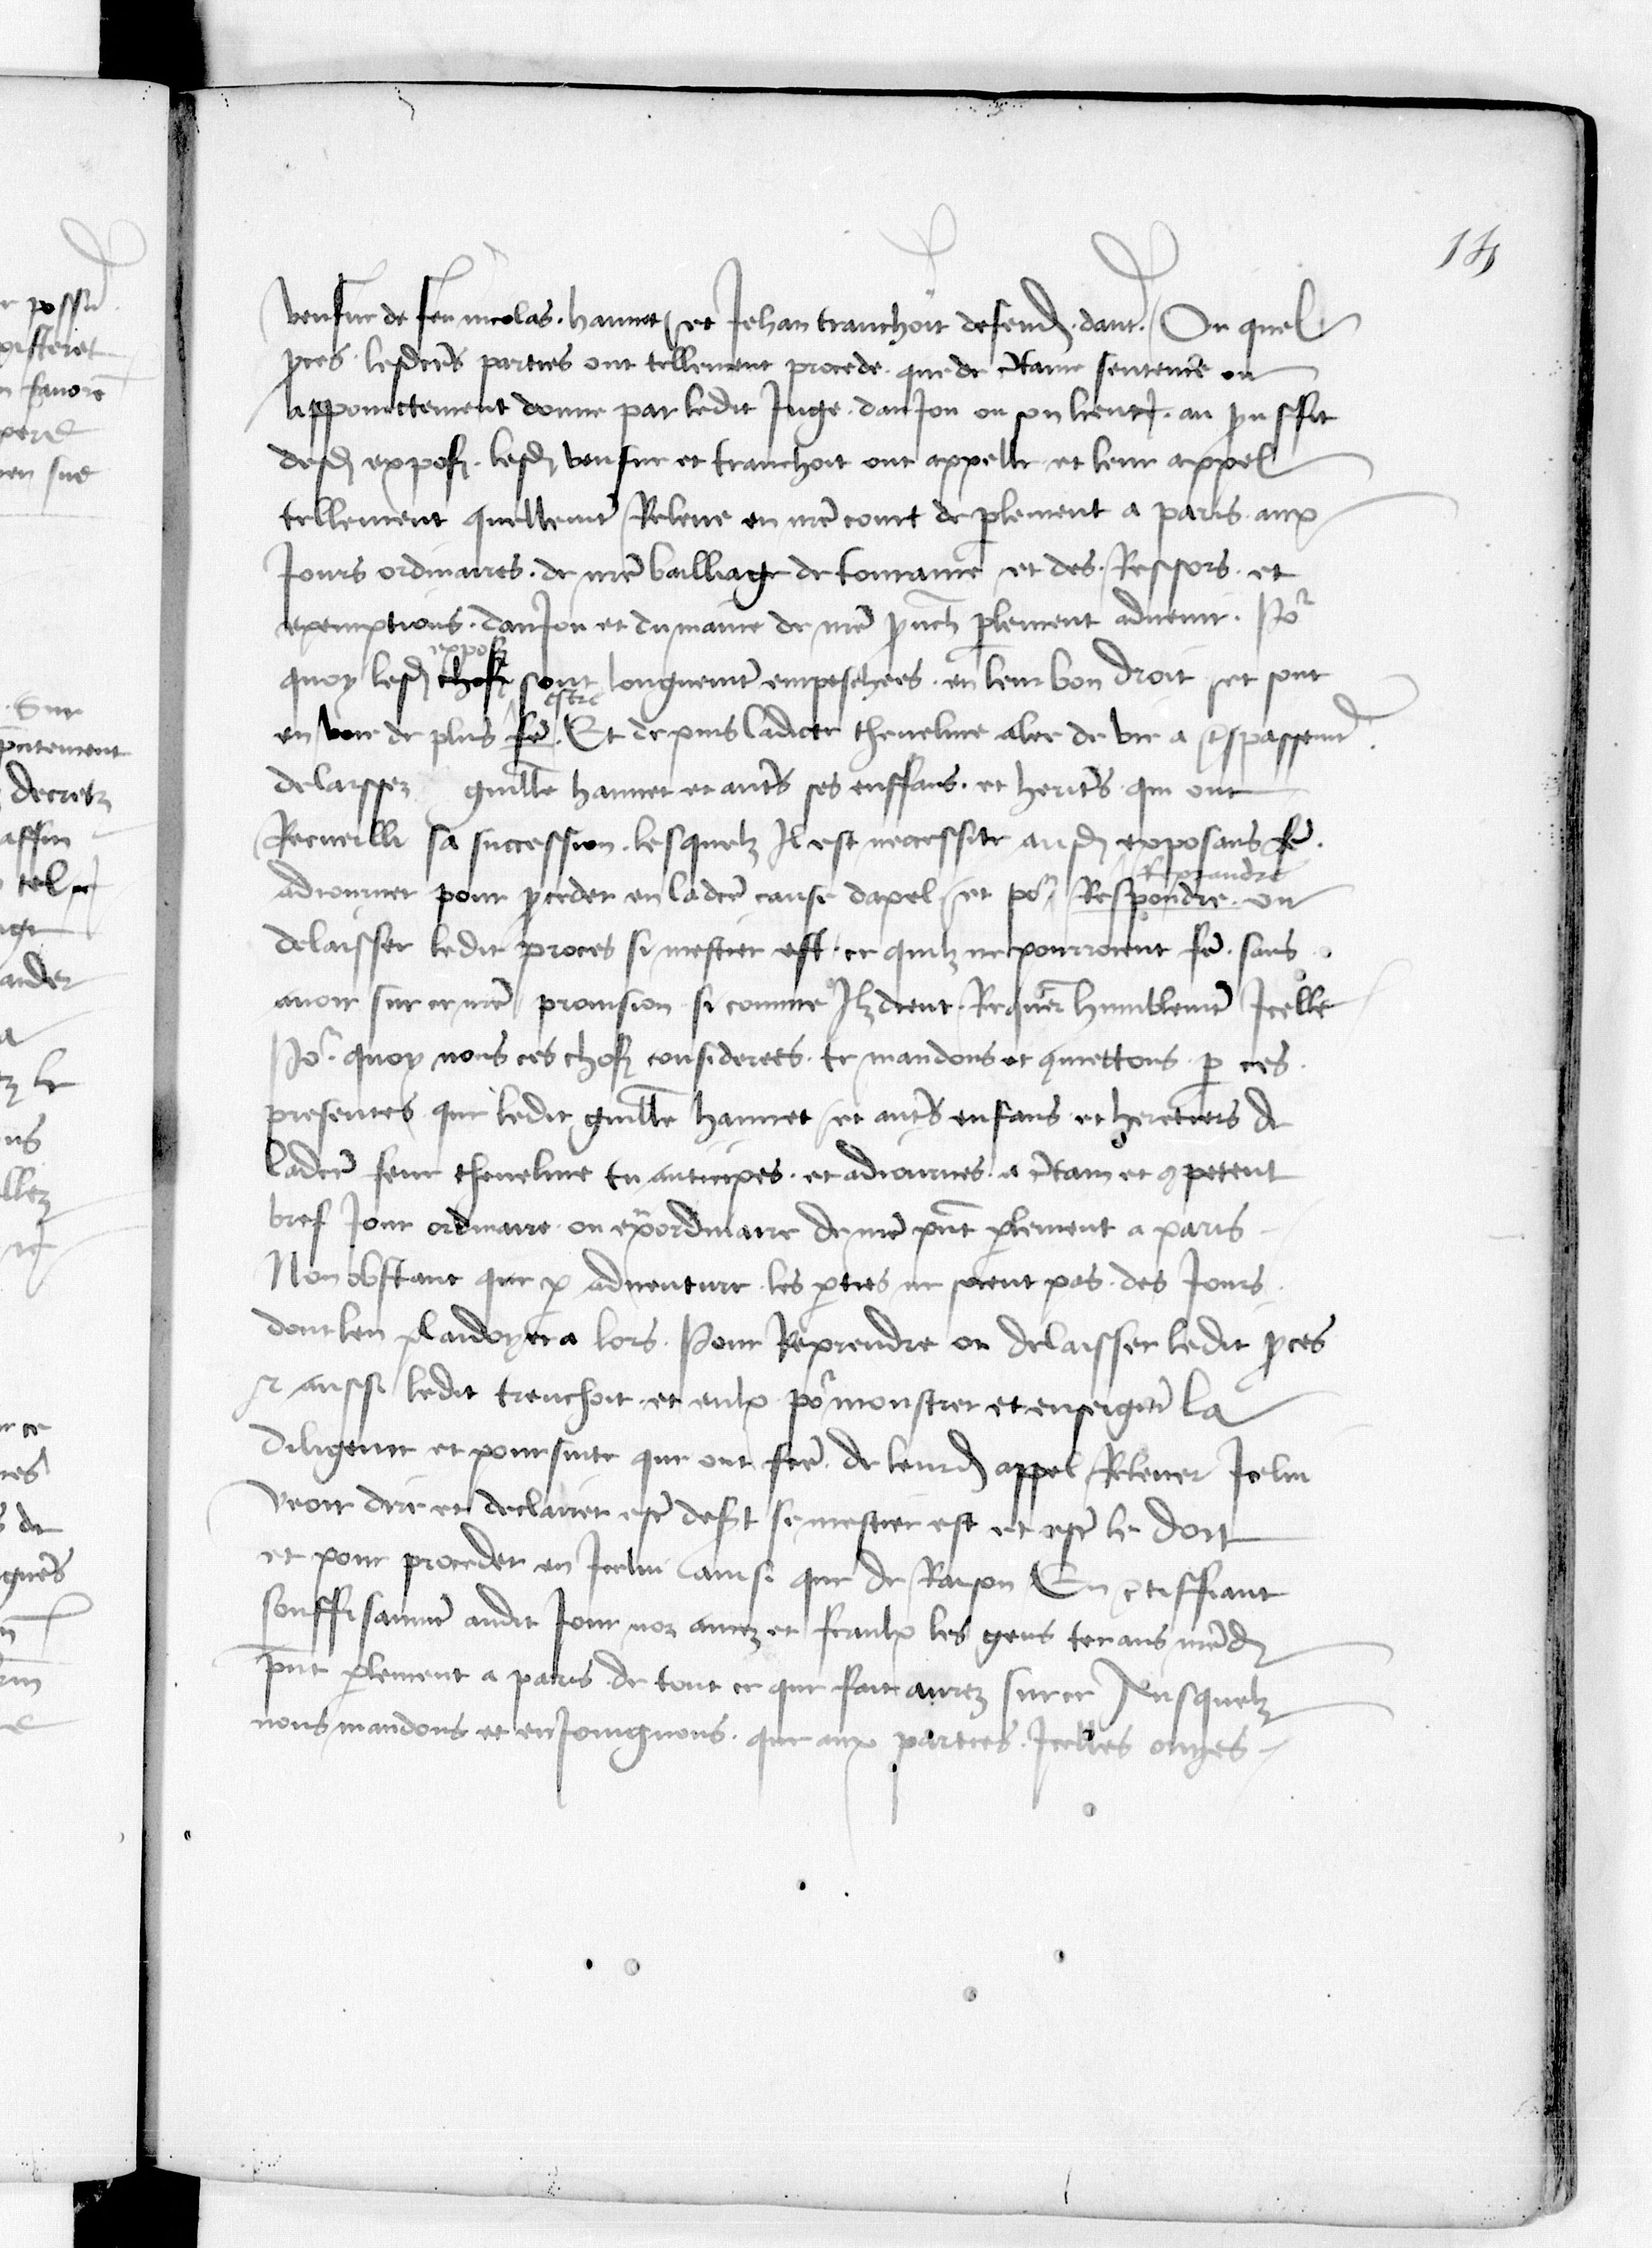 14
venfue de feu nicolas hannet et Jehan tranchoit defend. dant. Ou quel
pces lesdctes parties ont tellement procede que de ctaine sentence ou
appoinctement donne par ledit Juge danJou ou son lieuten. au prouffit
desd expos. lesd venfue et tranchoit ont appelle et leur appel
tellement quellemt Releve en nre court de plement a paris aux
Jours ordinaires de nre bailliage de touraine et des Ressors et
exemptions danJou et du maine de nre pnch plement advenir. Po
quoy lesd chos expos sont longuemt empeschees en leur bon droit et sont
en voie de plus fe estre. Et depuis ladicte theveline alee de vie a trespassemt
delaissez guille hannet et autes ses enffans et herites qui ont
Recueilli sa succession lesquelz Il est necessite ausd exposans fe
adiourner pour pceder en ladcte cause dapel et po Respondre Reprandre ou
delaisser ledit proces si mestier est ce quilz ne pourroient fe sans
avoir sur ce nre provision si comme Ilz dient Requer humblemt Icelle
Po quoy nous ces chos considerees te mandons et cmettons p ces
presentes que ledit guille hannet et autes enfans et heretiers de
ladcte feue theveline tu anticipes et adiournes a ctain et cpetent
bref Jour ordinaire ou exordinaire de nre pnt plement a paris
Non obstant que p adventure les pties ne soient pas des Jours
dont len plaidoyera lors. Pour Reprendre ou delaisser ledit pces
et aussi ledit trenchoit et eulx po monstrer et enseignr la
diligence et poursuite que ont fcte de leurd appel Relever Icelui
veoir dire et declairer estre desert si mestier est et estre le doit
et pour proceder en Icelui ainsi que de Raison En ctiffiant
souffisanmt audit Jour noz amez et feaulx les gens tenans nred
pnt plement a paris de tout ce que fait aurez sur ce Ausquelz
nous mandons et enJoingnons que aux parties Icelles ouyes